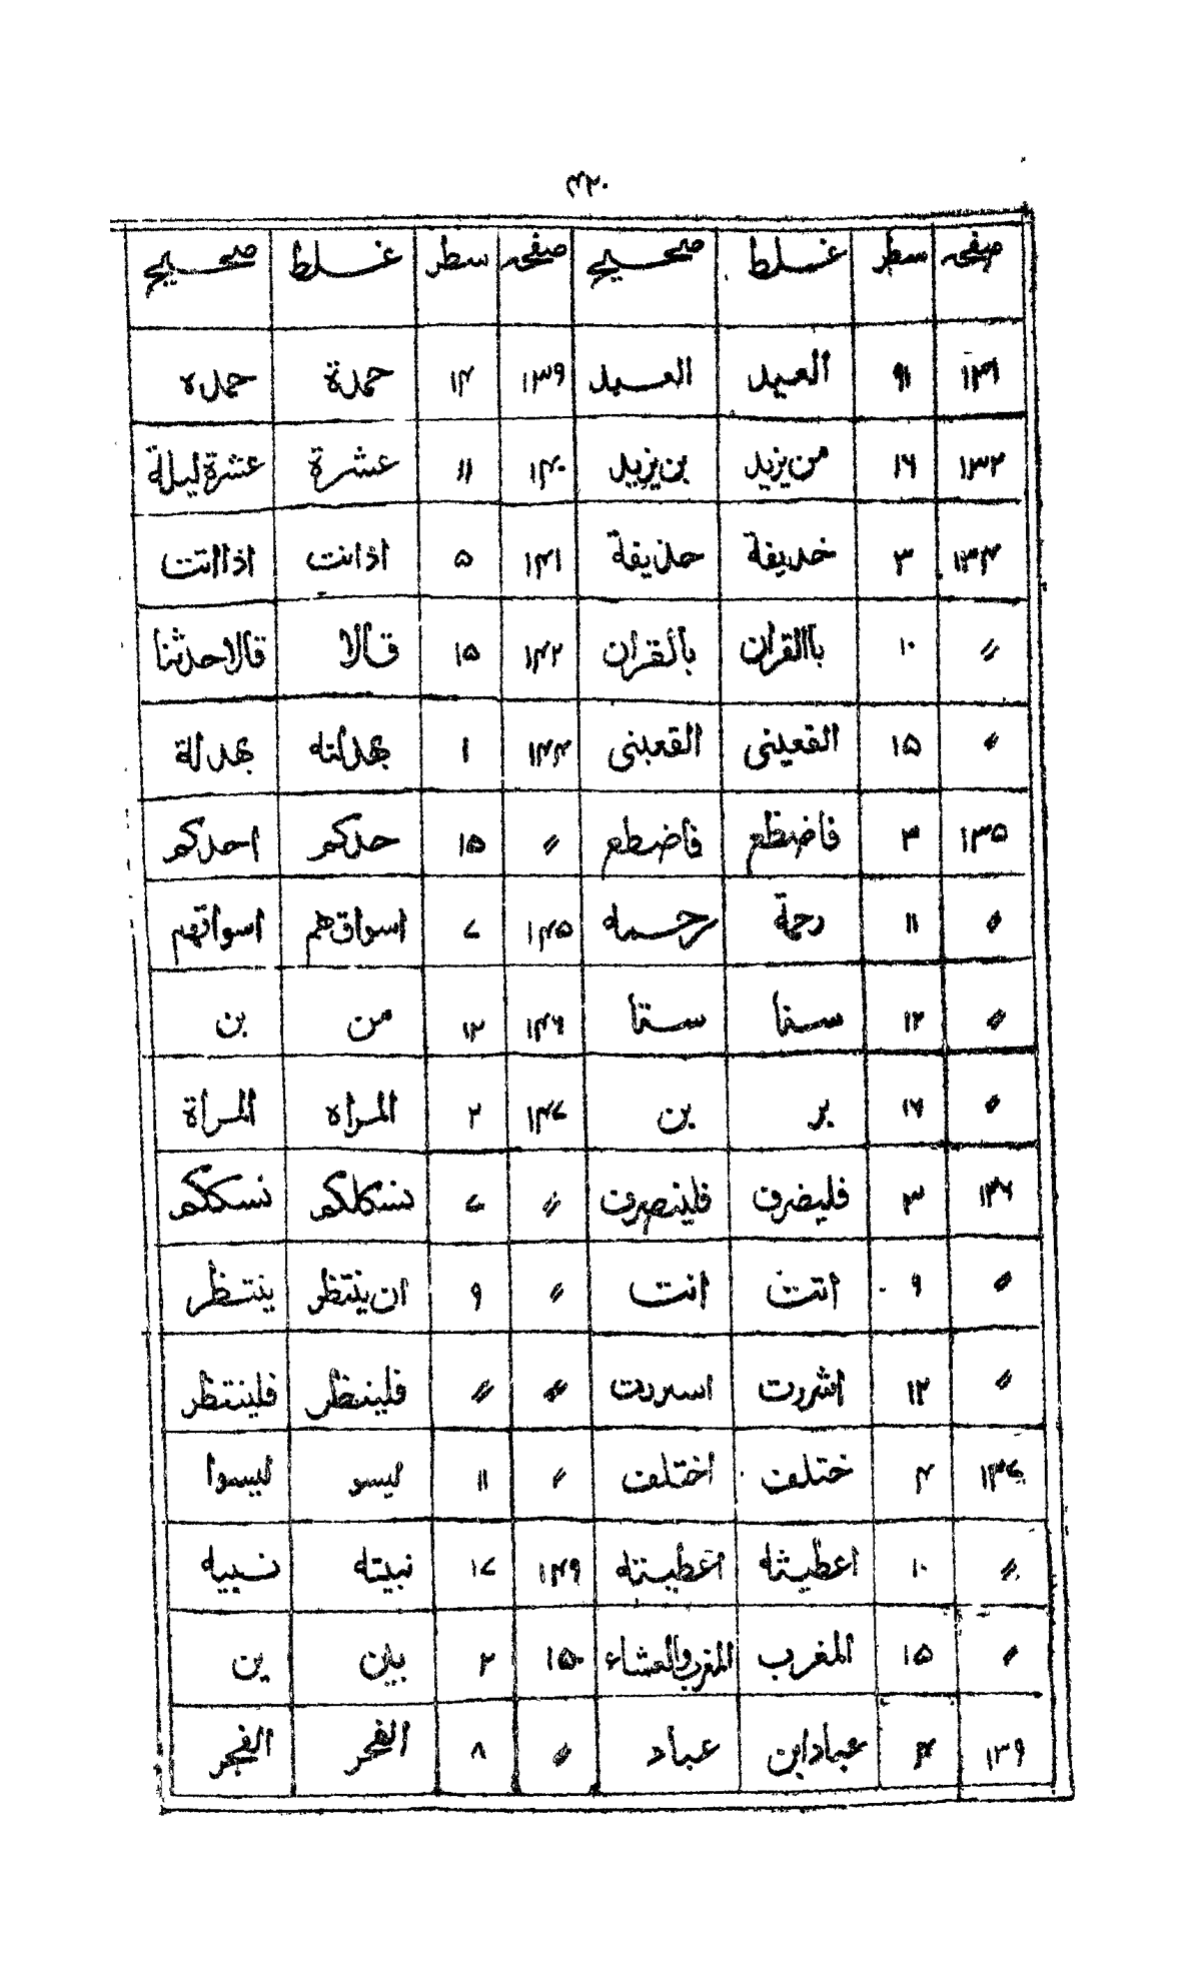 ۴۲۰
صفحہ سطر غلط صحیح صفحہ سطر غلط صحیح
العید العبد ۱۳۹ ۱۴ حمدة حمده
۱۳۲ ۱۶ من یزید بن یزید ۱۴۰ ۱۱ عشرة عشرة لیلة
۱۳۴ ۳ خدیفة حذیفة ۱۴۱ ۵ اذانت اذاانت
〃 ۱۰ باالقران بالقران ۱۴۲ ۱۵ قالا قالاحدثنا
〃 ۱۵ القعینی القعبنی ۱۴۴ ۱ بھدلته بھدلة
۱۳۵ ۳ فاضظع فاضطع 〃 ۱۵ حدکم احدکم
〃 ۱۱ رحمة رحمه ۱۴۵ ۷ اسواق هم اسواقهم
〃 ۱۲ سنا ستا ۱۴۶ ۱۲ من بن
〃 ۱۶ بر بن ۱۴۷ ۲ المراه المراة
۱۳۶ ۳ فلیضرف فلینصرف 〃 ۷ نسکلکم نسککم
〃 ۹ اتت انت 〃 ۹ ان ینتظر ینتظر
〃 ۱۲ اشررت اسررت 〃 〃 فلینظر فلینتظر
۱۳۷ ۴ ختلف اختلف 〃 ۱۱ لیسو لیسوا
〃 ۱۰ اعطیثه اعطیته ۱۴۹ ۱۷ نبیته نبیه
〃 ۱۵ المغرب المغرب والعشاء ۱۵۰ ۲ بین بن
۱۳۹ ۴ عبادابن عباد 〃 ۸ الفحر الفجر